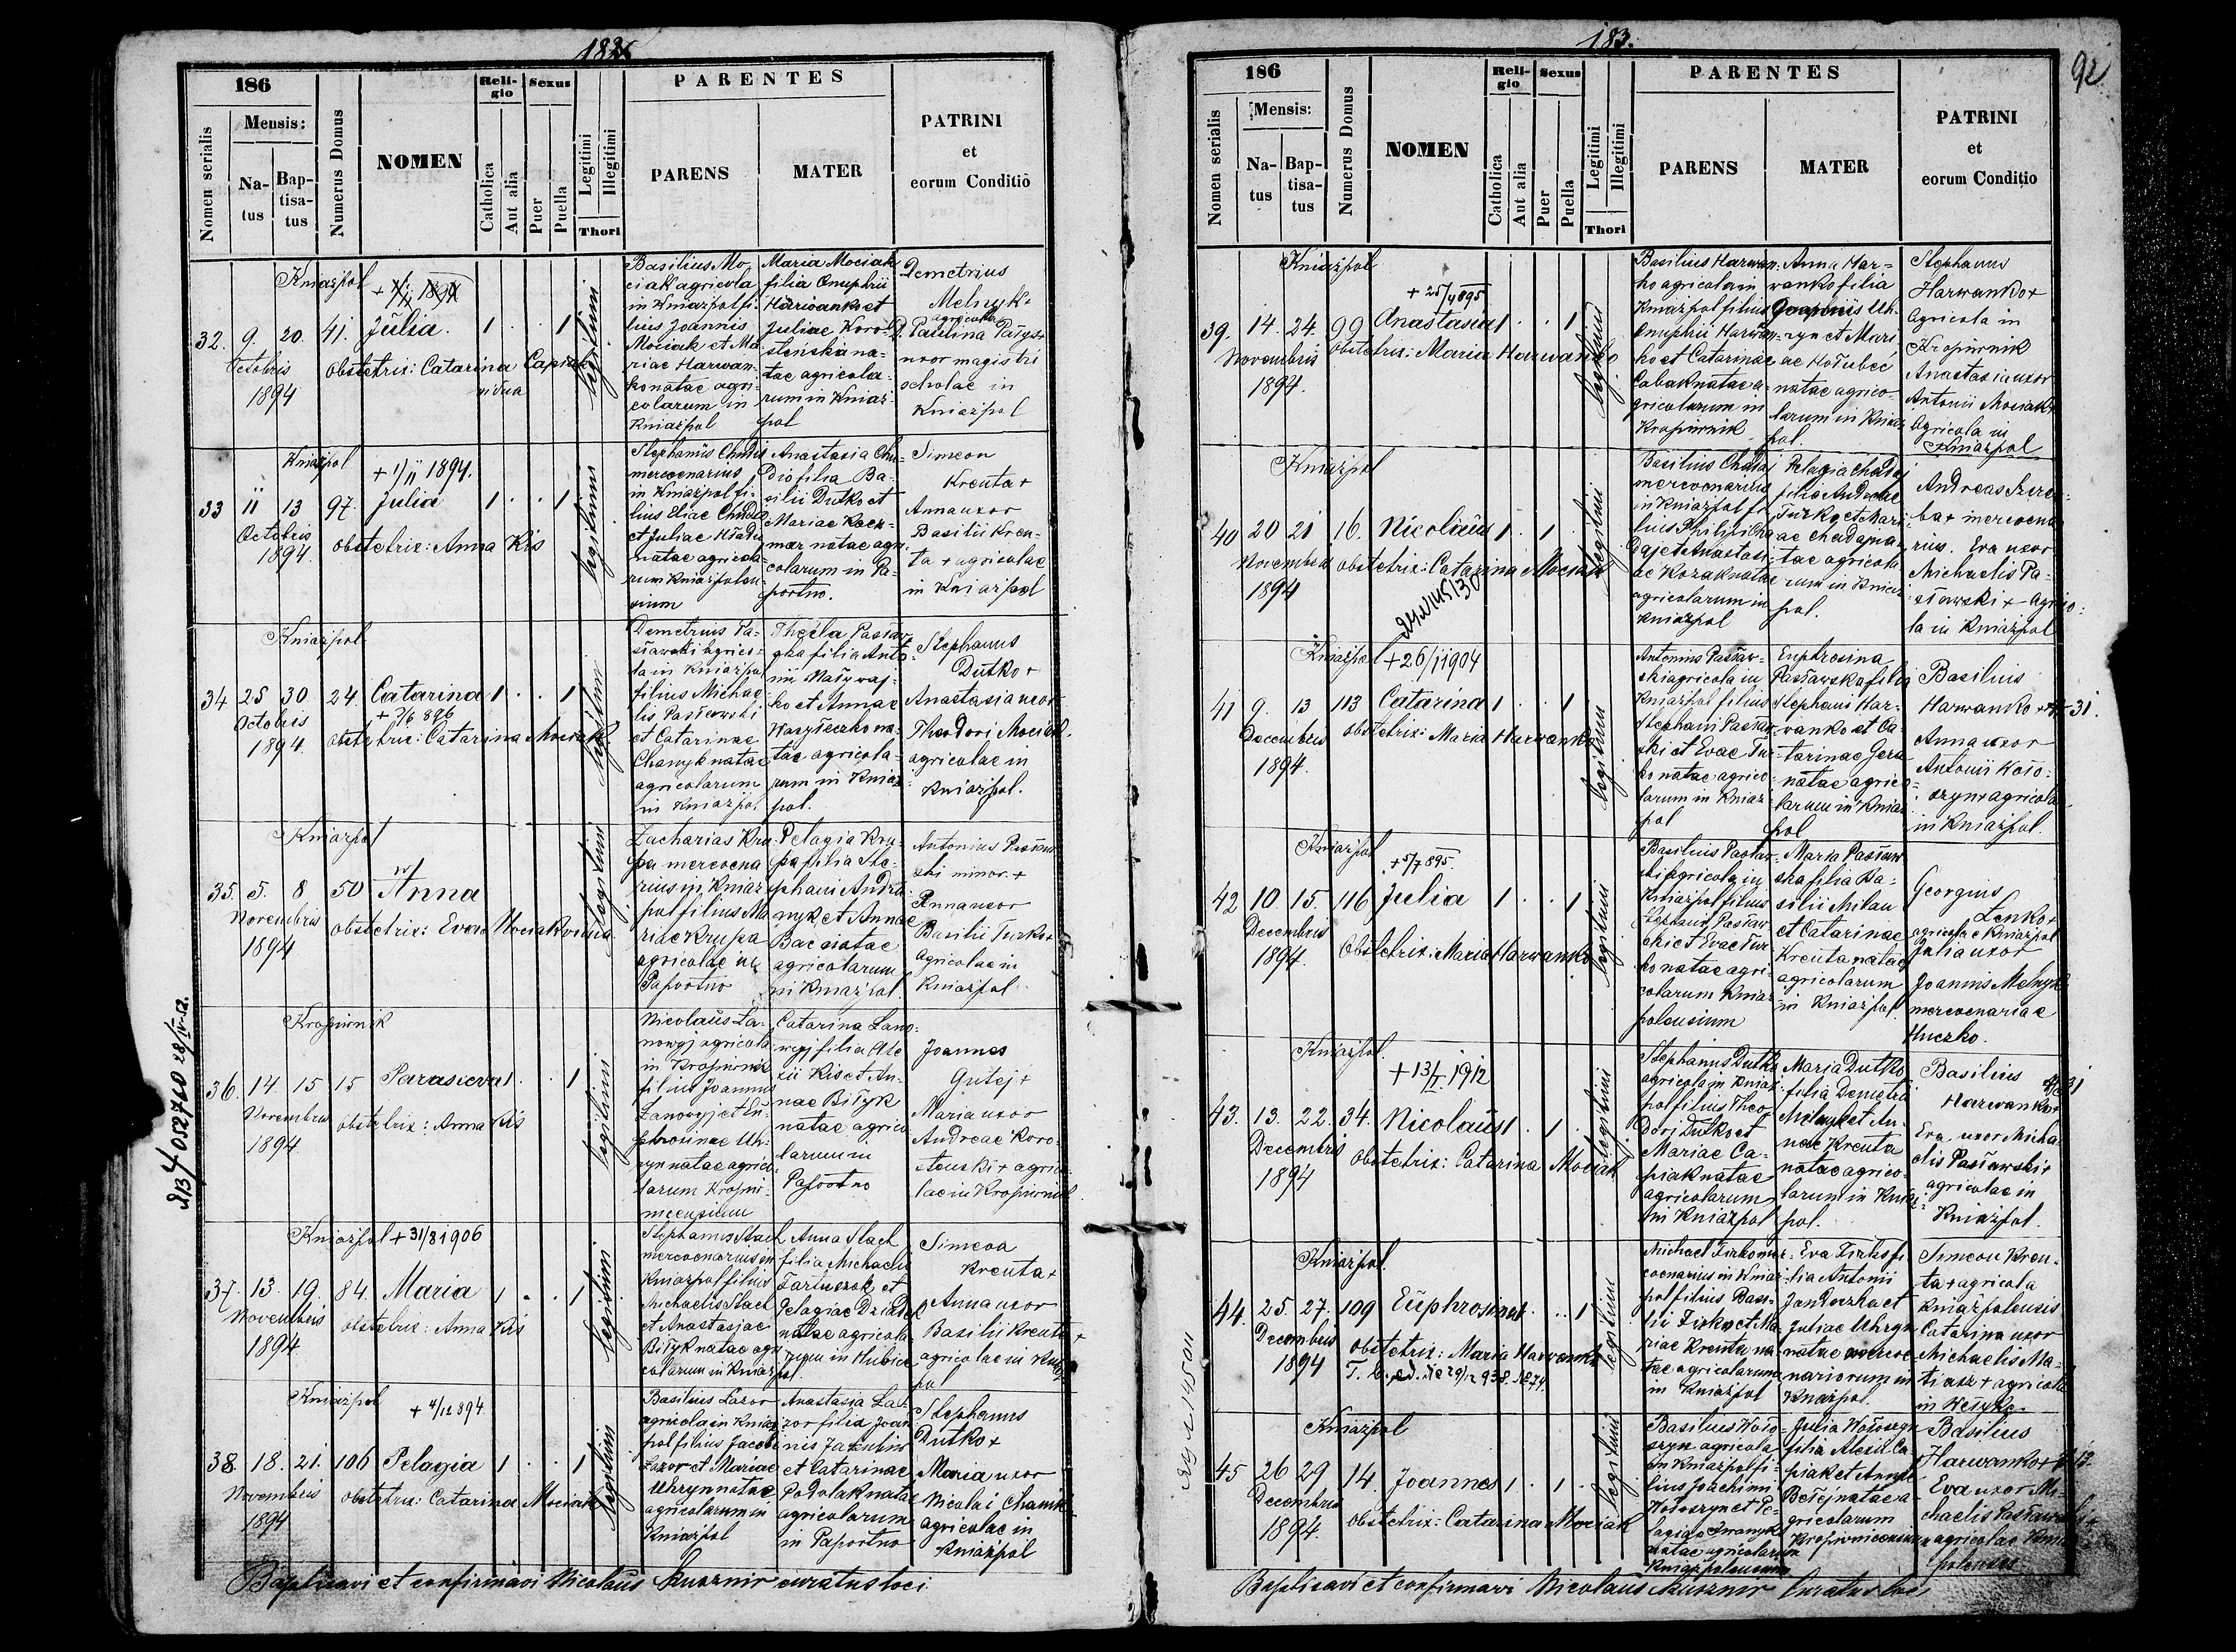 182
186
Mensis:
Nomen serialis
Na-
tus
Bap-
tisa-
tus
Numerus Domus
NOMEN
Reli-
gio
Catholica
Aut alia
Sexus
Puer
Puella
Legitimi
Illegitimi
Thori
PARENTES
PARENS
MATER
PATRINI
et
eorum Conditio
Kniażpol
32. 9. 20. 41. Julia. 1 . . 1
Octobris
1894
obstetrix: Catarina Capiak
vidua
legitimi
Basilius Mo-
ciak agricola
in Kniażpol fi-
lius Joannis
Mociak et Ma-
riae Harwan-
ko natae agri-
colarum in
Kniażpol
Maria Mociak
filia Onuphrii
Harwanko et
Juliae Koro-
stenska na-
tae agricola-
rum in Kniaż-
pol
Demetrius
Melnyk +
agricola
Paulina
uxor magistri
scholae in
Kniażpol
Kniażpol
+ 1/11 1894.
33 11 13 97. Julia 1 . . 1
Octobris
1894.
obstetrix: Anna Kis
legitimi
Stephanus Chudio
mercenarius
in Kniażpol fi-
lius Eliae Chudio
et Juliae Hładu
natae agricola-
rum Kniażpolen-
sium
Anastasia Chu-
dio filia Ba-
silii Dutko et
Mariae Kacz-
mar natae agri-
colarum in Pa-
portno.
Simeon
Kreuta +
Anna uxor
Basilii Kreu-
ta + agricolae
in Kniażpol
Kniażpol
34 25 30. 24. Catarina 1 . . 1
+ 7/6 896
Octobris
1894.
obstetrix: Catarina Mociak
legitimi
Demetrius Pa-
sławski agrico-
la in Kniażpol
filius Michae-
lis Pasławski
et Catarinae
Chanyk natae
agricolarum
in Kniażpol
Thecla Pasław-
ska filia Anto-
nii Maływaj-
ko et Annae
Wasyłeczko na-
tae agricola-
rum in Kniaż-
pol.
Stephanus
Dutko +
Anastasia uxor
Theodori Mociak
agricolae in
Kniażpol.
Kniażpol
35. 5. 8 50 Anna
Novembris
1894
obstetrix: Evae Mociak vidua
legitimi
Zacharias Kru-
pa mercena-
rius in Kniaż-
pol filius Ma-
riae Krupa
agricolae in
Paportno
Pelagia Kru-
pa filia Ste-
phani Andru-
nyk et Annae
Bac natae
agricolarum
in Kniażpol.
Antonius
minor. +
Anna uxor
Basilii Turko +
agricolae in
Kniażpol
Kropiwnik
36. 14. 15 15 Parasceva 1 . . 1
Novembris
1894.
obstetrix: Anna Kis
legitimi
Nicolaus Ła-
nowyj agricola
in Kropiwnik
filius Joannis
Łanowyj et Eu-
phrosinae Uh-
ryn natae agrico-
larum Kropiw-
nicensium
Catarina Łano-
wyj filia Ale-
xii Kis et An-
nae Biłyk
natae agrico-
larum in
Paportno
Joannes
Gutej +
Maria uxor
Andreae Koro-
stenski + agrico-
lae in Kropiwnik
Kniażpol + 31/8 1906
37. 13. 19. 84. Maria 1 . . 1
Novembris
1894
obstetrix: Anna Kis
legitimi
Stephanus Stach
mercenarius in
Kniażpol filius
Michaelis Stach
et Anastasiae
Biłyk natae agri-
colarum in Kniażpol
Anna Stach
filia Michaelis
Fartuszok et
Pelagiae Dziadyk
natae agricola-
rum in Hubice
Simeon
Kreuta +
Anna uxor
Basilii Kreuta +
agricolae in Kniaż-
pol
Kniażpol
+ 4/12 894.
38. 18. 21. 106 Pelagia 1 . . 1
Novembris
1894
obstetrix: Catarina Mociak
legitimi
Basilius Łazor
agricola in Kniaż-
pol filius Jacobi
Łazor et Mariae
Uhryn natae
agricolarum in
Kniażpol
Anastasia Ła-
zor filia Joan-
nis Jakubiw
et Catarinae
Podolak natae
agricolarum
in Paportno
Stephanus
Dutko +
Maria uxor
Nicolai Chanik
agricolae in
Kniażpol
Baptisavi et confirmavi Nicolaus Kusznir curatus loci
183.
92
186
Mensis:
Nomen serialis
Na-
tus
Bap-
tisa-
tus
Numerus Domus
NOMEN
Reli-
gio
Catholica
Aut alia
Sexus
Puer
Puella
Legitimi
Illegitimi
Thori
PARENTES
PARENS
MATER
PATRINI
et
eorum Conditio
Kniażpol
+ 25/4 895
39. 14. 24. 99 Anastasia 1 . . 1
Novembris
1894.
obstetrix: Maria Harwanko
legitimi
Basilius Harwan-
ko agricola in
Kniażpol filius
Onuphrii Harwan-
ko et Catarinae
Cabak natae a-
gricolarum in
Kropiwnik
Anna Har-
wanko filia
Uh-
ryn et Mari-
ae Hołubec
natae agrico-
larum in Kniaż-
pol.
Stephanus
Harwanko +
agricola in
Kropiwnik
Anastasia uxor
Antonii Mociak +
agricola in
Kniażpol
Kniażpol
40 20 21 16. Nicolaus 1 . 1 .
Novembris
1894
obstetrix: Catarina Mociak
legitimi
Basilius Chadaj
mercenarius
in Kniażpol fi-
lius Philippi Cha-
daj et Anastasi-
ae Kozak natae
agricolarum in
Kniażpol
Pelagia Chadaj
filia Andreae
Turko et Mari-
ae Chuda na-
tae agricola-
rum in Kniaż-
pol.
Andreas
mercena-
rius. Eva uxor
Michaelis Pa-
sławski + agrico-
la in Kniażpol
Kniażpol + 26/11 904
41 9. 13 113 Catarina 1 . . 1
Decembris
1894.
obstetrix: Maria Harwanko
legitimi
Antonius Pasław-
ski agricola in
Kniażpol filius
Stephani Pasław-
ski et Evae Tur-
ko natae agrico-
larum in Kniaż-
pol
Euphrosina
Pasławska filia
Stephani Har-
wanko et Ca-
tarinae Gera
natae agrico-
larum in Kniaż-
pol
Basilius
Harwanko + 31.
Anna uxor
Antonii Woło-
szyn + agricola
in Kniażpol.
Kniażpol
+ 5/7 895.
42 10. 15. 116 Julia 1 . . 1
Decembris
1894.
Obstetrix: Maria Harwanko
legitimi
Basilius Pasław-
ski agricola in
Kniażpol filius
Stephani Pasław-
ski et Evae Tur-
ko natae agri-
colarum Kniaż-
polensium
Maria Pasław-
ska filia Ba-
silii Milan
et Catarinae
Kreuta natae
agricolarum
in Kniażpol
Georgius
Lenko +
agricola e Kniażpol
Julia uxor
Joannis Melnyk
mercenariae
Huczko.
Kniażpol.
+ 13/5 1912
43. 13. 22. 34. Nicolaus 1 . 1 .
Decembris
1894
Obstetrix: Catarina Mociak
legitimi
Stephanus Dutko
agricola in Kniaż-
pol filius Theo-
dori Dutko et
Mariae Ca-
piak natae
agricolarum
in Kniażpol
Maria Dutko
filia Demetrii
Melnyk et An-
nae Kreuta
natae agrico-
larum in Kniaż-
pol.
Basilius
Harwanko +
Eva uxor Micha-
elis Pasławski +
agricolae in
Kniażpol.
Kniażpol.
44. 25. 27. 109 Euphrosina 1 . . 1
Decembris
1894
obstetrix: Maria Harwanko
legitimi
Michael Firko mer-
cenarius in Kniaż-
pol filius Basi-
lii Firko et Ma-
riae Kreuta na-
tae agricolarum
in Kniażpol
Eva Firko fi-
lia Antonii
et
Juliae Uhryn
natae merce-
nariorum in
Kniażpol.
Simeon Kreu-
ta + agricola
Kniażpolensis
Catarina uxor
Michaelis Ma-
tiasz + agricola
in
Kniażpol
45 26 29 14. Joannes 1 . 1 .
Decembris
1894.
obstetrix: Catarina Mociak
legitimi
Basilius Woło-
szyn agricola
in Kniażpol fi-
lius Joachimi
Wołoszyn et Pe-
lagiae Iwanyk
natae agricolarum
Kniażpolensium
Julia Wołoszyn
filia Alexii Ca-
piak et Annae
natae a-
gricolarum
Kropiwnicensium
Basilius
Harwanko +
Eva uxor Mi-
chaelis Pasławski +
agricolae Kniaż-
polensis
Baptisavi et confirmavi Nicolaus Kusznir Curatus loci